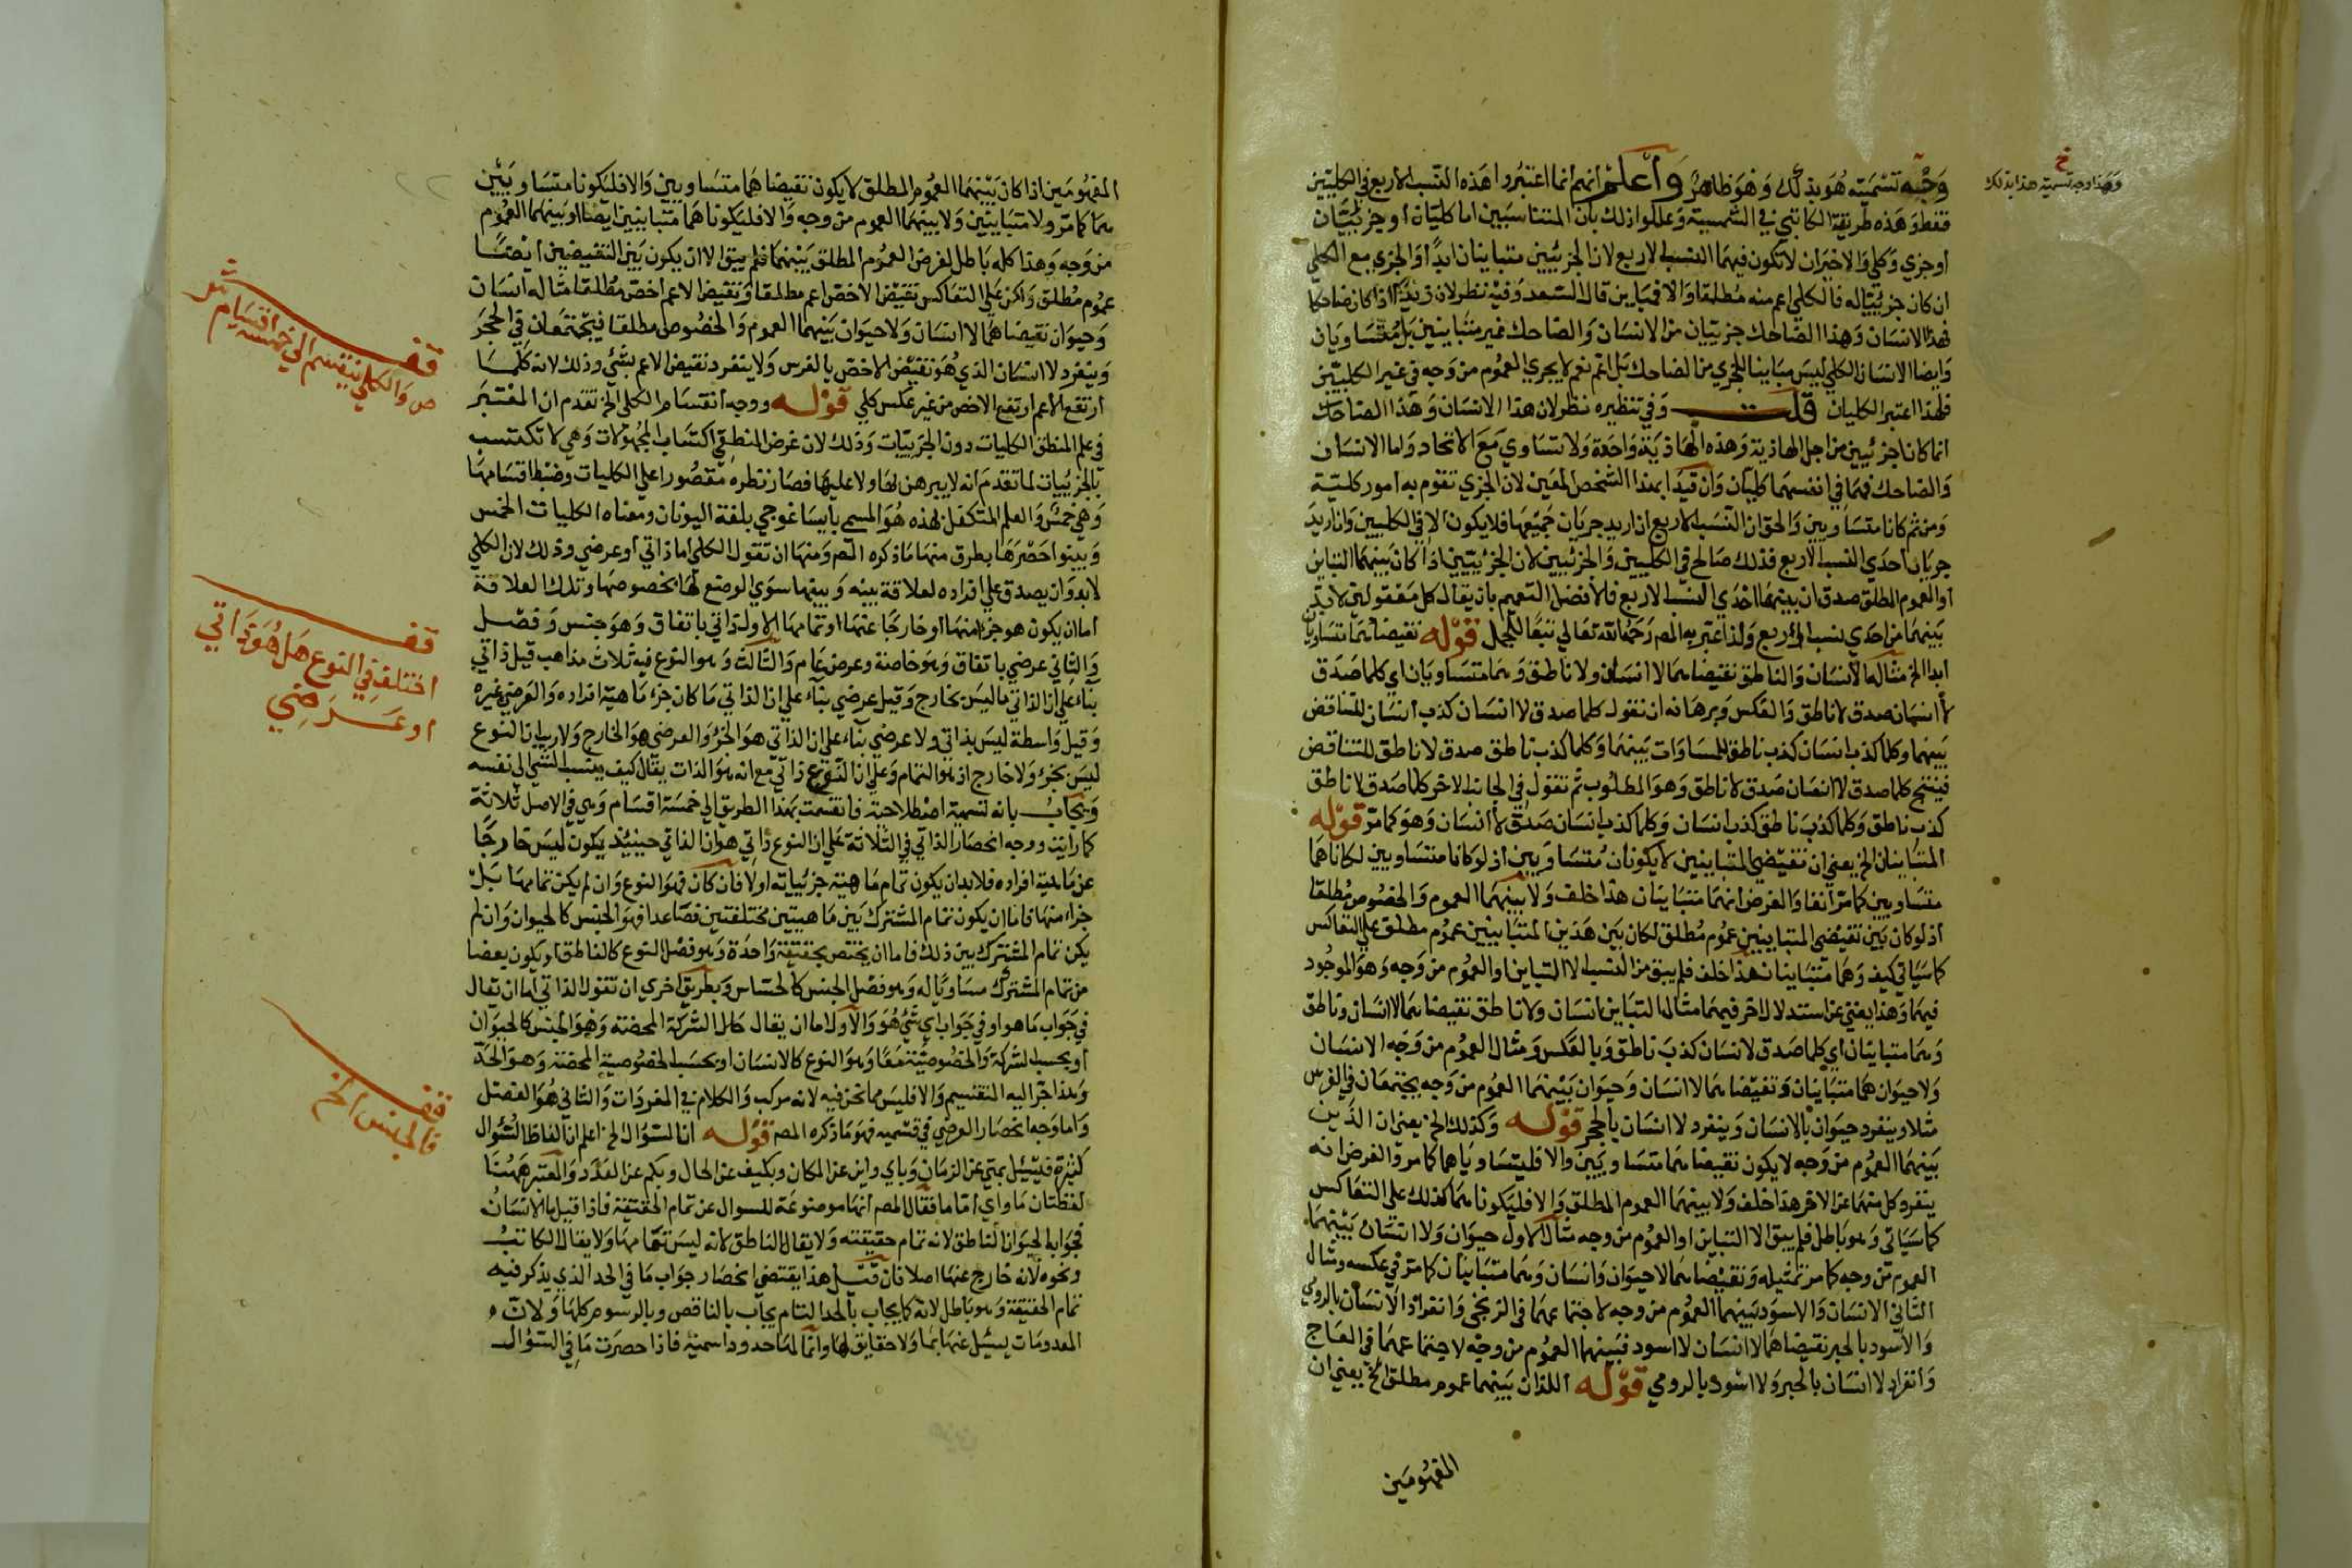 وجه تسميته هو بذلك وهو ظاهر واعلم انهم انما اعتبروا هذه النسب الاربع في الكليتين
فقط وهذه طريقة الكاتبي في الشمسية وعللوا ذلك بان المتناسبين اما كليان او جزئيان
او جزي وكلي والاخيران لا تكون فيهما النسب الاربع لان الجزئيين متباينان ابدا والجزي مع الكلي
ان كان جزئيا له فالكلي اعم منه مطلقا والا فمباين قال السعد وفيه نظر لان زيدا اذا كان ضاحكا
فهذا الانسان وهذا الضاحك جزئيان من الانسان والضاحك غير متباينين بل متساويان
وايضا الانسان الكلي ليس مباينا للجزي من الضاحك بل اعم نعم لا يجري العموم من وجه في غير الكليين
فلهذا اعتبر الكليان قلت وفي تنظيره نظر لان هذا الانسان وهذا الضاحك
انما كانا جزئيين من اجل الهاذية وهذه الهاذية واحدة ولا تساوي مع الاتحاد واما الانسان
والضاحك فهما في انفسهما كليان وان قيدا بهذا الشخص المعين لان الجزي تقوم به امور كلية
ومن ثم كانا متساويين والحق ان النسب الاربع ان اريد جريان جميعها فلا يكون الا في الكليين وان اريد
جريان احدي النسب الاربع فذلك صالح في الكليين والجزئيين لان الجزئيين اذا كان بينهما التباين
او العموم المطلق صدق ان بينهما احدي النسب الاربع فالافضل التعميم بان يقال كل معقولين لا بد
بينهما من احدي نسب اربع ولذا عبر به المص رحمه الله تعالي تبعا للجمل قوله نقيضاهما متساويان
ابدا الخ مثاله الانسان والناطق نقيضاهما لا انسان ولا ناطق وهما متساويان اي كلما صدق
لا انسان صدق لا ناطق والعكس وبرهانه ان نقول كلما صدق لا انسان كذب انسان للتناقض
بينهما وكلما كذب انسان كذب ناطق للمساوات بينهما وكلما كذب ناطق صدق لا ناطق للتناقض
فينتج كلما صدق لا انسان صدق لا ناطق وهو المطلوب ثم تقول في الجانب الاخر كلما صدق لا ناطق
كذب ناطق وكلما كذب ناطق كذب انسان وكلما كذب انسان صدق لا انسان وهو كما مر قوله
المتباينان الخ يعني ان نقيضي المتباينين لا يكونان متساويين اذ لو كانا متساويين لكانا هما
متساويين كما مر انفا والفرض انهما متباينان هذا خلف ولا بينهما العموم والخصوص مطلقا
اذ لو كان بين نقيضي المتباينين عموم مطلق لكان بين هذين المتباينين عموم مطلق علي التعاكس
كما سياتي كيف وهما متباينان هذا خلف فلم يبق من النسب الا التباين او العموم من وجه وهو الموجود
فيهما وهذا يغني عن استدلال اخر فيهما مثال التباين انسان ولا ناطق نقيضاهما لا انسان وناطق
وهما متباينان اي كلما صدق لا انسان كذب ناطق وبالعكس ومثال العموم من وجه الانسان
ولا حيوان هما متباينان ونقيضاهما لا انسان وحيوان بينهما العموم من وجه يجتمعان في الفرس
مثلا وينفرد حيوان بالانسان وينفرد لا انسان بالحجر قوله وكذلك الخ يعني ان الذين
بينهما العموم من وجه لا يكون نقيضاهما متساويين والا فليتساوياهما كما مر والفرض انه
ينفرد كل منهما عن الاخر هذا خلف ولا بينهما العموم المطلق والا فليكوناهما كذلك علي التعاكس
كما سياتي وهو باطل فلم يبق الا التباين او العموم من وجه مثال الاول حيوان ولا انسان بينهما
العموم من وجه كما مر تمثيله ونقيضاهما لا حيوان وانسان وهما متباينان كما مر في عكسه ومثال
الثاني الانسان والاسود بينهما العموم من وجه لاجتماعهما في الزنجي وانفراد الانسان بالرومي
والاسود بالحبر نقيضاهما لا انسان لا اسود فبينهما العموم من وجه لاجتماعهما في العاج
وانفراد لا انسان بالحبر ولا اسود بالرومي قوله اللذان بينهما عموم مطلق الخ يعني ان
المفهومين
خ
وهذا وجه تسمية هذا بذلك
المفهومين اذا كان بينهما العموم المطلق لا يكون نقيضاهما متساويين والا فليكونا متساويين
هما كما مر ولا متباينين ولا بينهما العموم من وجه والا فليكوناهما متباينين ايضا او بينهما العموم
من وجه وهذا كله باطل لفرض العموم المطلق بينهما فلم يبق الا ان يكون بين النقيضين ايضا
عموم مطلق ولكن علي التعاكس نقيض الاخص اعم مطلقا ونقيض الاعم اخص مطلقا مثاله انسان
وحيوان نقيضاهما لا انسان ولا حيوان بينهما العموم والخصوص مطلقا فيجتمعان في الحجر
وينفرد لا انسان الذي هو نقيض الاخص بالفرس ولا ينفرد نقيض الاعم بشئ وذلك لانه كلما
ارتفع الاعم ارتفع الاخص من غير عكس كلي قوله ووجه انقسام الكلي الخ تقدم ان المعتبر
في علم المنطق الكليات دون الجزئيات وذلك لان غرض المنطقي اكتساب المجهولات وهي لا تكتسب
بالجزئيات لما تقدم انه لا يبرهن لها ولا عليها فصار نظره مقصورا علي الكليات وضبط اقسامها
وهي خمس والعلم المتكفل لهذه هو المسمي بايساغوجي بلغة اليونان ومعناه الكليات الخمس
وبينوا حصرها بطرق منها ما ذكره المص ومنها ان تقول الكلي اما ذاتي او عرضي وذلك لان الكلي
لا بد وان يصدق علي افراده لعلاقة بينه وبينها سوي الوضع لها بخصوصها وتلك العلاقة
اما ان يكون هو جزء منها او خارجا عنها او تمامها الاول ذاتي باتفاق وهو جنس وفصل
والثاني عرضي باتفاق وهو خاصة وعرض عام والثالث وهو النوع فيه ثلاث مذاهب قيل ذاتي
بناء علي ان الذاتي ما ليس بخارج وقيل عرضي بناء علي ان الذاتي ما كان جزء ماهية افراده والعرضي غيره
وقيل واسطة ليس بذاتي ولا عرضي بناء علي ان الذاتي هو الجزء والعرضي هو الخارج ولا ريب ان النوع
ليس بجزء ولا خارج اذ هو التمام وعلي ان النوع ذاتي مع انه هو الذات يقال كيف ينسب الشي الي نفسه
ويجاب بانه تسمية اصطلاحية فانقسمت بهذا الطريق الي خمسة اقسام وهي في الاصل ثلاثة
كما رايت ووجه انحصار الذاتي في الثلاثة علي ان النوع ذاتي هو ان الذاتي حينئذ يكون ليس خارجا
عن ماهية افراده فلا بد ان يكون تمام ماهية جزئياته اولا فان كان فهو النوع وان لم يكن تمامها بل
جزء منها فاما ان يكون تمام المشترك بين ماهيتين مختلفتين فصاعدا فهو الجنس كالحيوان وان لم
يكن تمام المشترك بين ذلك فاما ان يختص بحقيقة واحدة وهو فصل النوع كالناطق او يكون بعضا
من تمام المشترك مساويا له وهو فصل الجنس كالحساس وبطريق اخري ان تقول الذاتي اما ان يقال
في جواب ما هو او في جواب اي شئ هو والاول اما ان يقال حال الشركة المحضة وهو الجنس كالحيوان
او بحسب الشركة والخصوصية معا وهو النوع كالانسان او بحسب الخصوصية المحضة وهو الحد
وهذا جر اليه التقسيم والا فليس مما نحن فيه لانه مركب والكلام في المفردات والثاني هو الفصل
واما وجه انحصار العرضي في قسميه فهو ما ذكره المص قوله انا السؤال الخ اعلم ان الفاظ السؤال
كثيرة فيسئل بمتي عن الزمان وباي واين عن المكان وبكيف عن الحال وبكم عن العدد والمعتبر ههنا
لفظتان ما واي اما ما فقال المص انها موضوعة للسوال عن تمام الحقيقة فاذا قيل ما الانسان
فجوابه الحيوان الناطق لانه تمام حقيقته ولا يقال الناطق لانه ليس تمامها ولا يقال الكاتب
ونحوه لانه خارج عنها اصلا فان قيل هذا يقتضي انحصار جواب ما في الحد الذي يذكر فيه
تمام الحقيقة وهو باطل لانه كما يجاب بالحد التام يجاب بالناقص وبالرسوم كلها ولان
المعدومات يسئل عنها بما ولا حقايق لها وانما لها حدود اسمية فاذا حصرت ما في السؤال
قف
والكلي ينقسم الي خمسة اقسام
قف
اختلف في النوع هل هو ذاتي
او عرضي
قف
فالجنس الخ